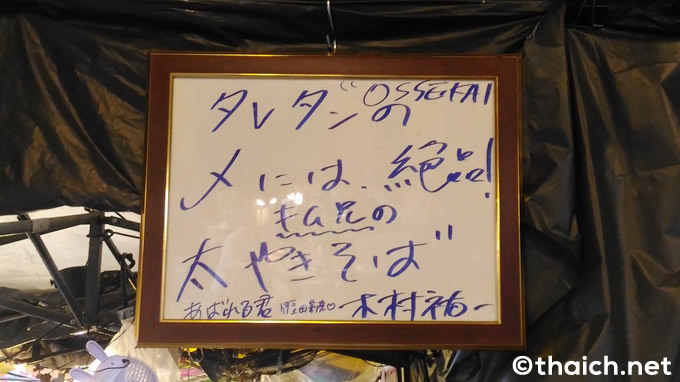 タレダンの OSSEKAI
メには、絶品!
キム兄の
太やきそば
あばれる君 木村祐一
©thaich.net